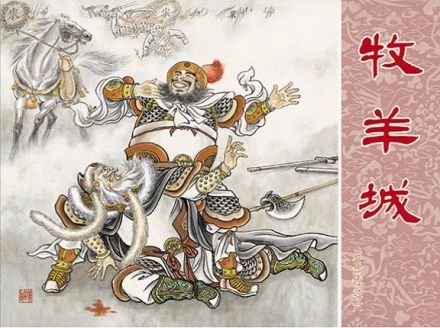 牧羊城